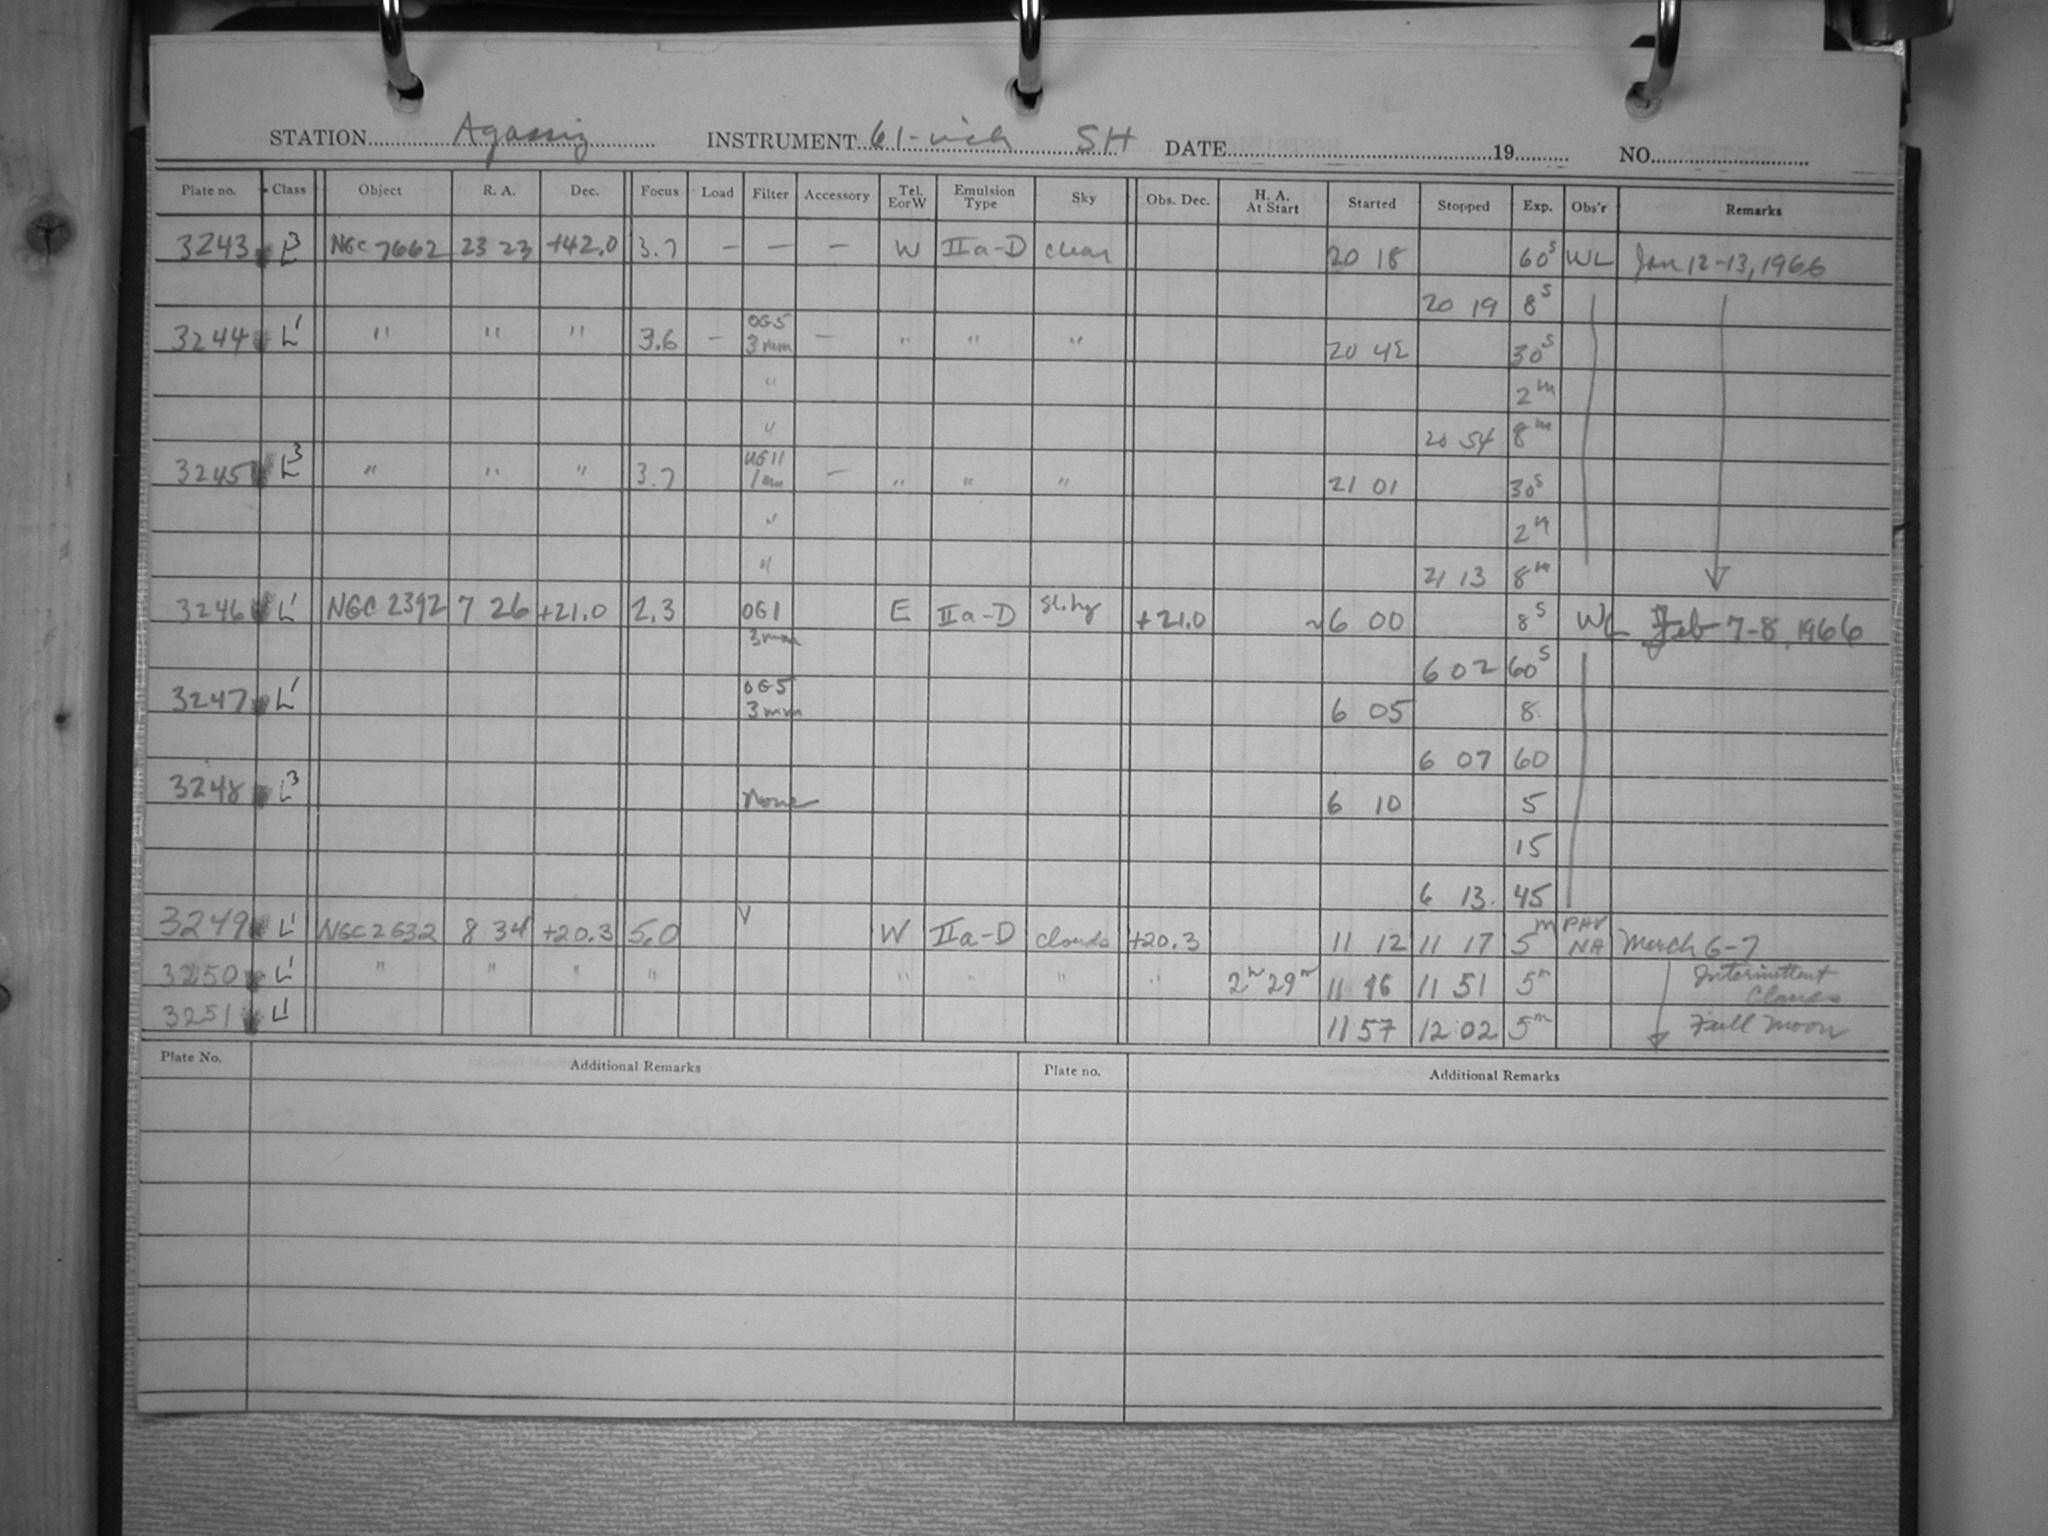 STATION Agassiz INSTRUMENT 61-inch SH DATE 19 NO.
Plate no. Class Object R. A. Dec. Focus Load Filter Accessory Tel. EorW Emulsion Type Sky Obs. Dec. H. A. At Start Started Stopped Exp. Obs'r Remarks
3243 L3 NGC 7662 23 23 +42.0 3.7 — — — W IIa-D clear 20 18 60s WL Jan 12-13, 1966
20 19 8s
3244 L1 " " " 3.6 — OG5 3mm — " " " 20 42 30s
" 2m
" 20 54 8m
3245 L3 " " " 3.7 UG11 1mm — " " " 21 01 30s
" 2m
" 21 13 8m
3246 L1 NGC 2392 7 26 +21.0 2.3 OG1 3mm E IIa-D sl. hy +21.0 ~6 00 8s WL Feb 7-8, 1966
6 02 60s
3247 L1 OG5 3mm 6 05 8
6 07 60
3248 L3 None 6 10 5
15
6 13 45
3249 L1 NGC 2632 8 34 +20.3 5.0 V W IIa-D clouds +20.3 11 12 11 17 5m NA March 6-7
3250 L1 " " " " " " " " 2h 29m 11 46 11 51 5m Intermittent Clouds
3251 L1 11 57 12 02 5m Full Moon
Plate No. Additional Remarks Plate no. Additional Remarks